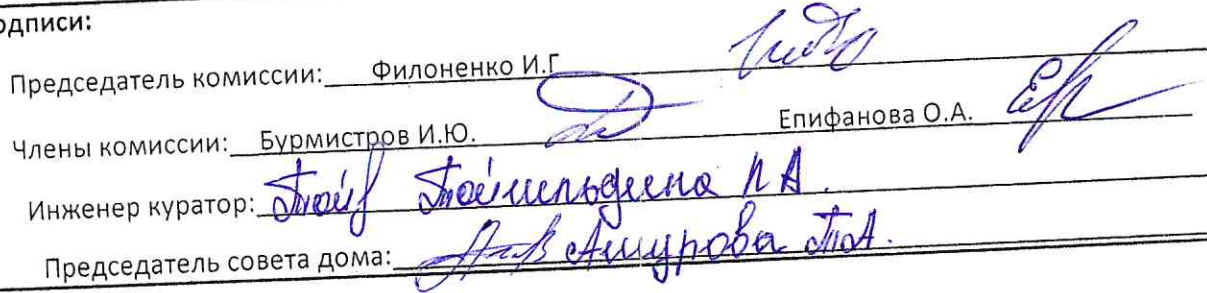 одписи:
Председатель комиссии: Филоненко И.Г
Члены комиссии: Бурмистров И.Ю. Епифанова О.А.
Инженер куратор: Тойгильдина Л А.
Председатель совета дома: Ашурова Т.А.